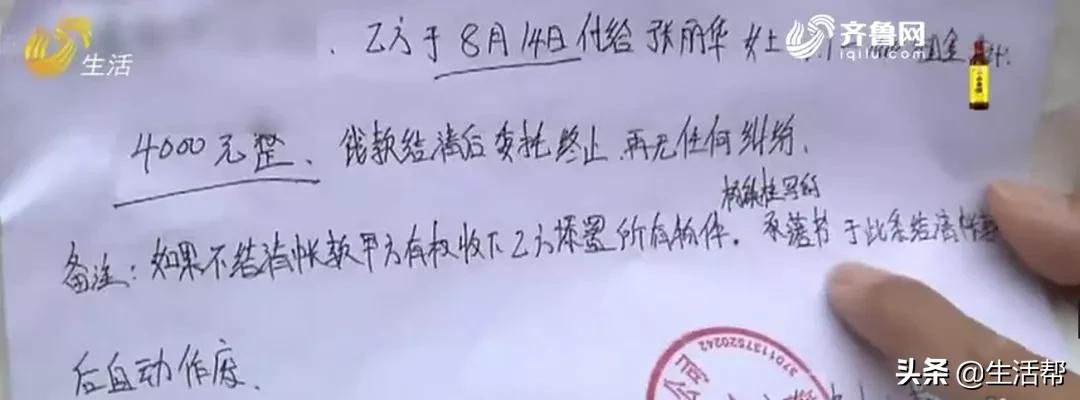 生活
齐鲁网
iqilu.com
乙方于8月14日付给张丽华女士
4000元整、钱款结清后委托终止再无任何纠纷、
写的
备注：如果不结清帐款甲方有权收下乙方添置所有物件。承诺书于此条结清帐款
后自动作废、
3701137520242
公司
头条 @生活帮